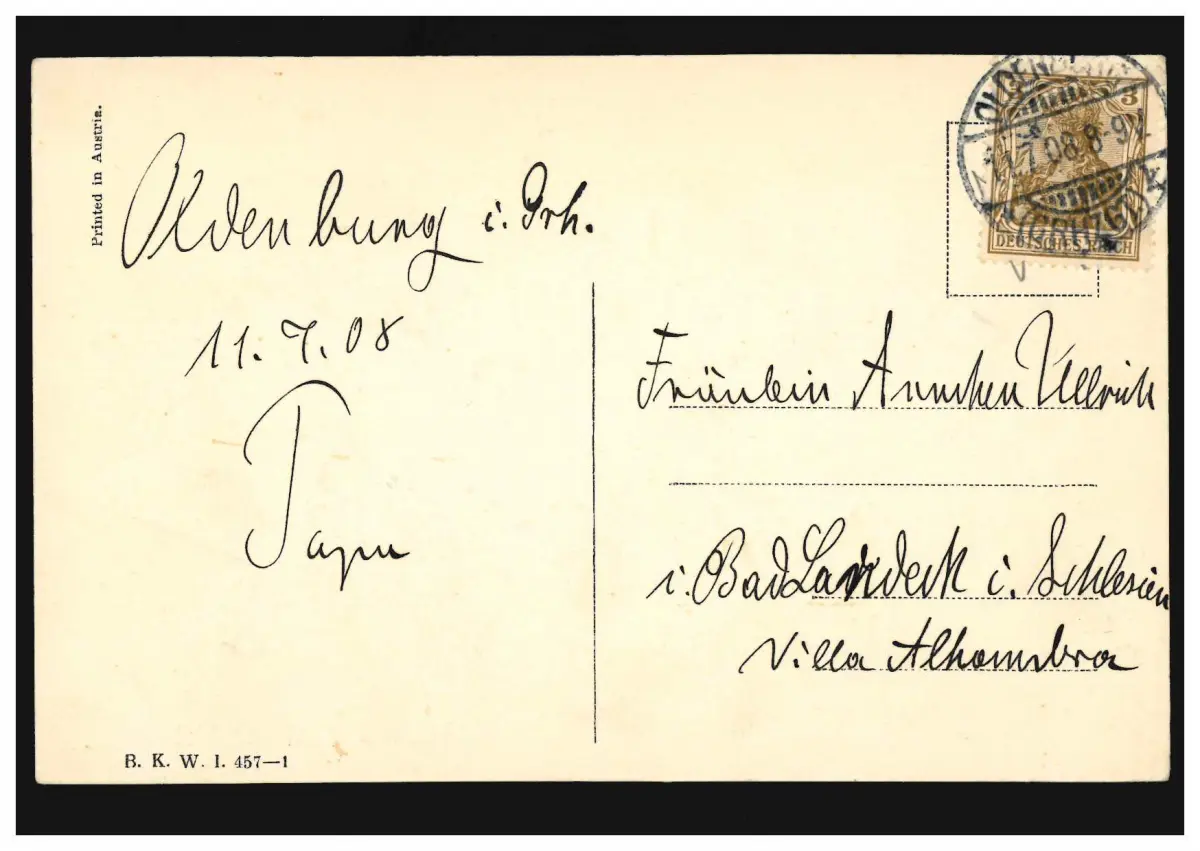 Printed in Austria.
Oldenburg i. Grh.
11.7.08
Papa
B. K. W. I. 457—1
OLDENBURG
11.7.08.8-9V.
(GRHZGT.)
3
DEUTSCHES REICH
Fräulein Annchen Ullrich
i. Bad Landeck i. Schlesien
Villa Alhambra